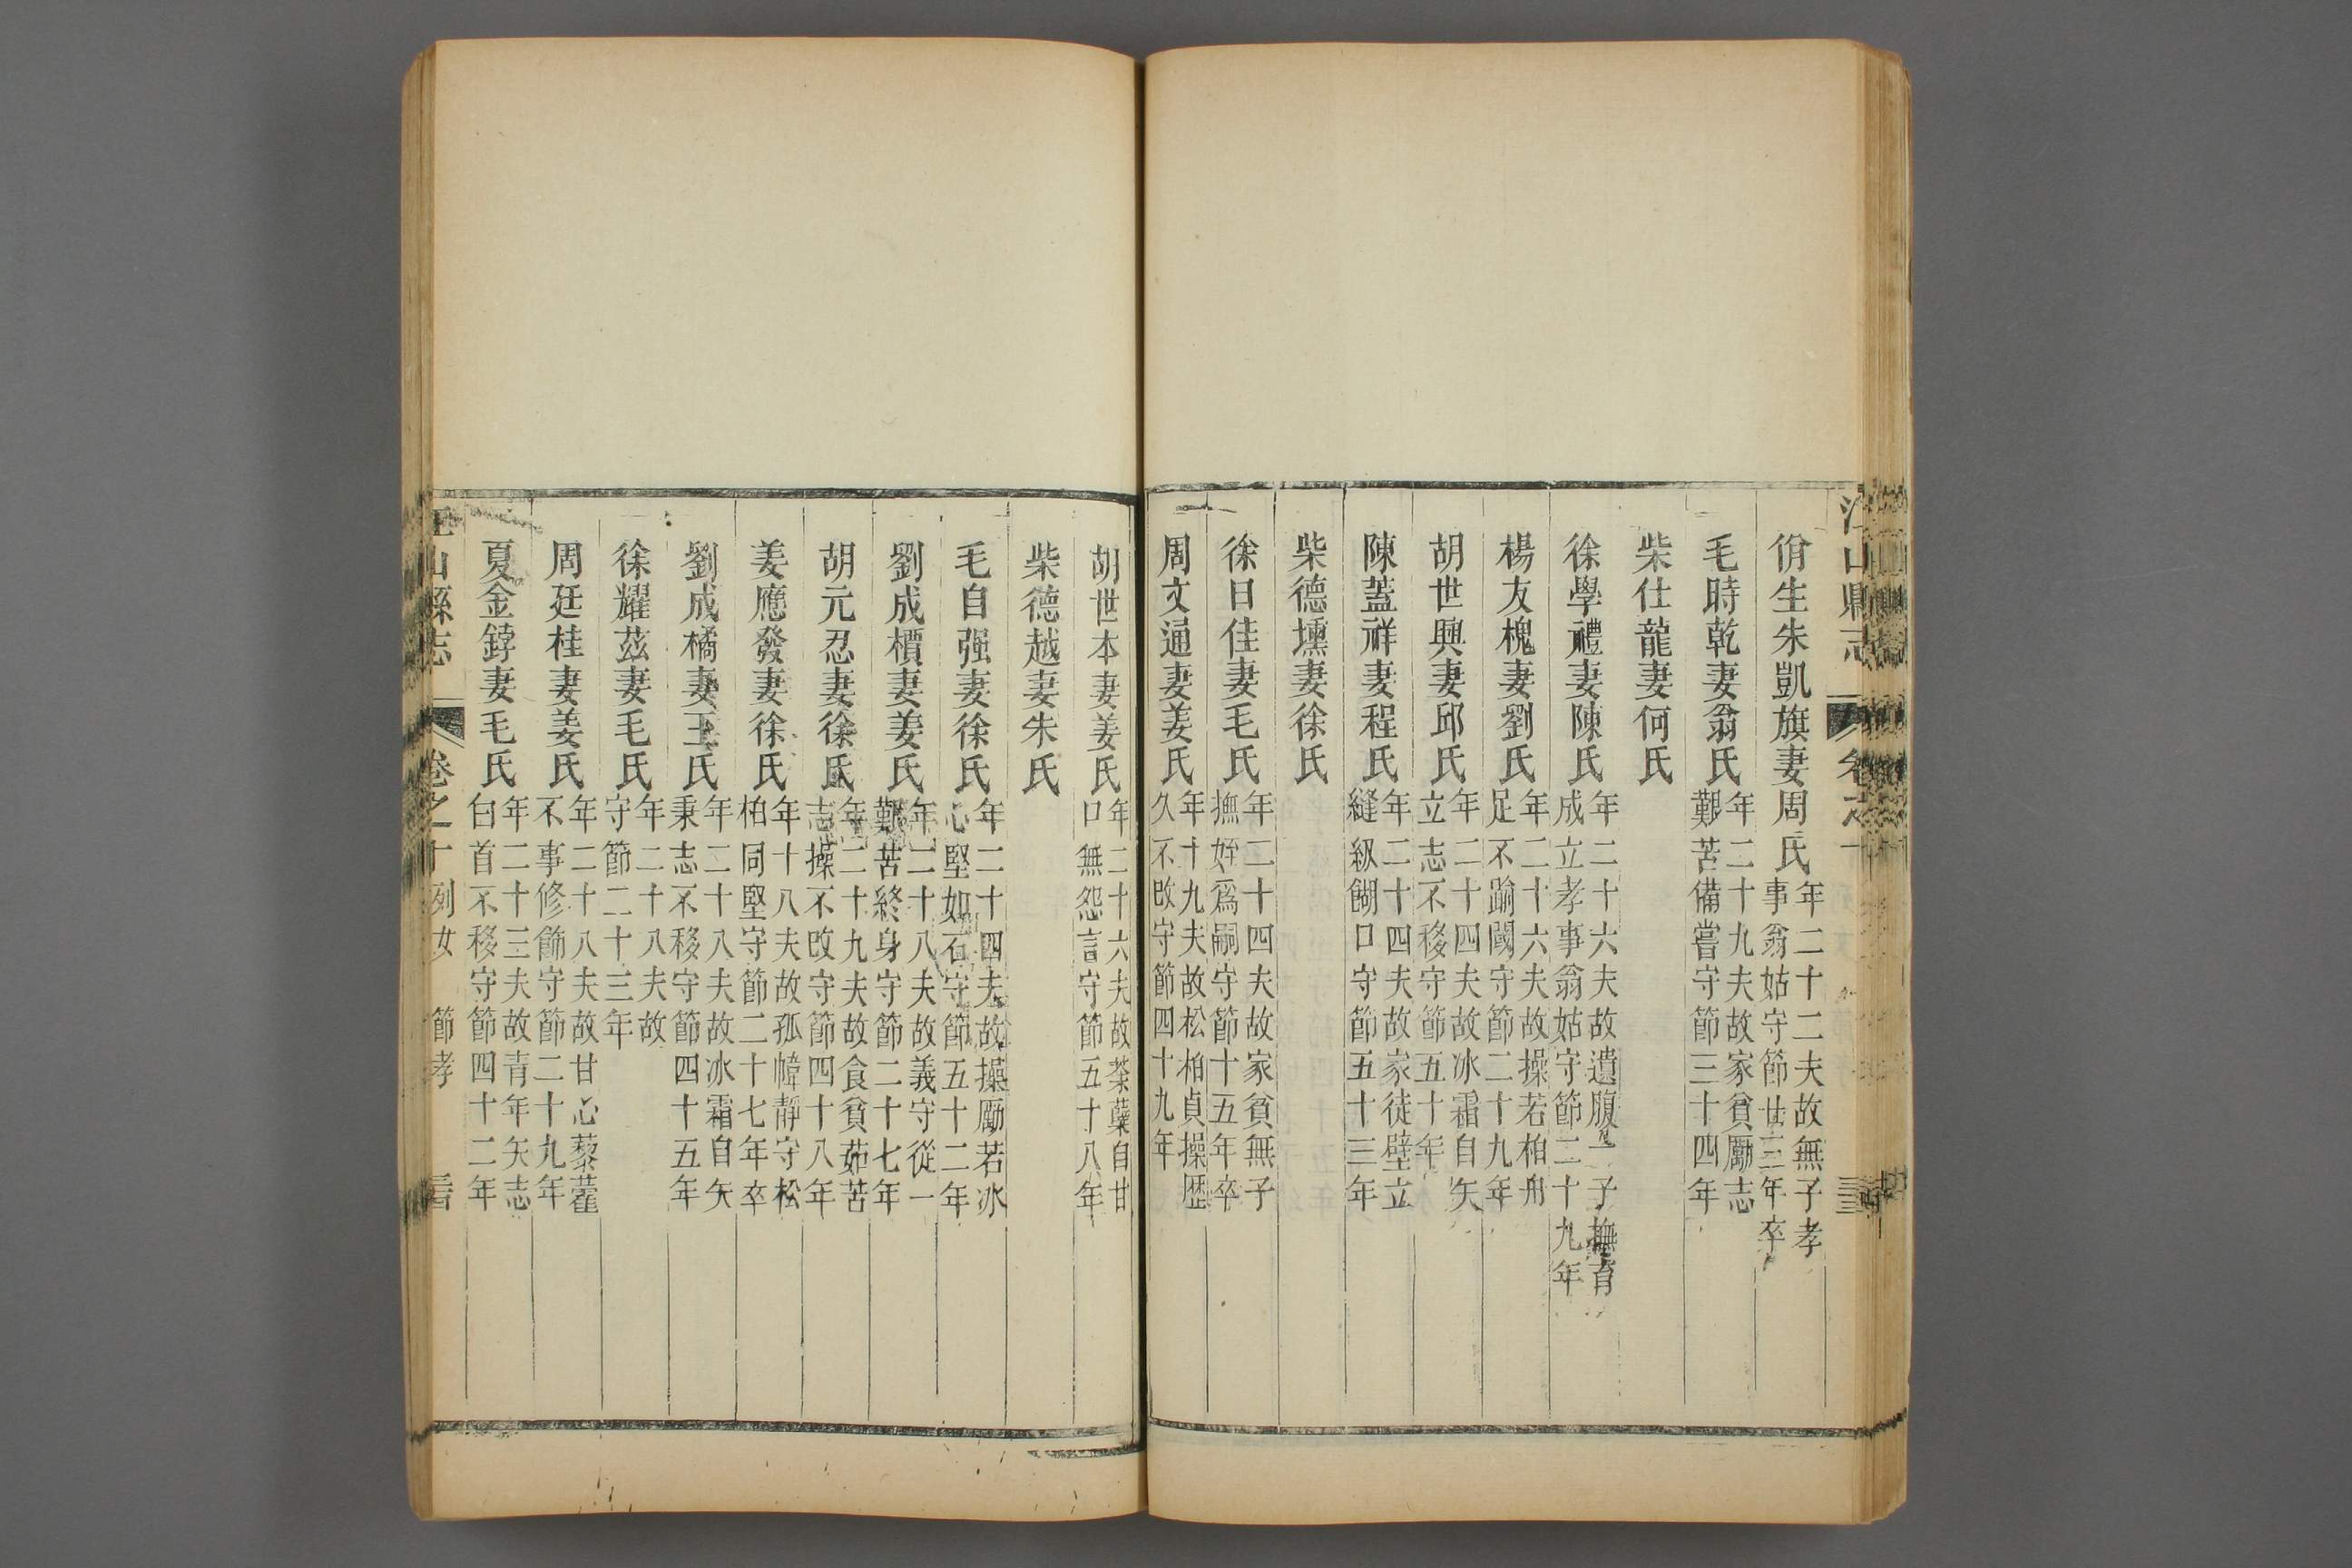 江山縣志
佾生朱凱旗妻周氏年二十二夫故無子孝事翁姑守節廿三年卒
毛時乾妻翁氏年二十九夫故家貧勵志艱苦備嘗守節三十四年
柴仕龍妻何氏
徐學禮妻陳氏年二十六夫故遺腹一子撫育成立孝事翁姑守節二十九年
楊友槐妻劉氏年二十六夫故操若柏舟足不踰閾守節二十九年
胡世興妻邱氏年二十四夫故冰霜自矢立志不移守節五十年
陳蓋祥妻程氏年二十四夫故家徒壁立縫紉餬口守節五十三年
柴德壎妻徐氏
徐日佳妻毛氏年二十四夫故家貧無子撫姪爲嗣守節十五年卒
周文通妻姜氏年十九夫故松柏貞操歷久不改守節四十九年
胡世本妻姜氏年二十六夫故荼蘖自甘口無怨言守節五十八年
柴德越妻朱氏
毛自强妻徐氏年二十四夫故操勵若冰心堅如石守節五十二年
劉成檟妻姜氏年二十八夫故義守從一艱苦終身守節二十七年
胡元忍妻徐氏年二十九夫故食貧茹苦志操不改守節四十八年
姜應發妻徐氏年十八夫故孤幃靜守松柏同堅守節二十七年卒
劉成橘妻王氏年二十八夫故冰霜自矢秉志不移守節四十五年
徐耀茲妻毛氏年二十八夫故守節二十三年
周廷桂妻姜氏年二十八夫故甘心藜藿不事修飾守節二十九年
夏金錞妻毛氏年二十三夫故青年矢志白首不移守節四十二年
江山縣志 卷之十 列女 節孝